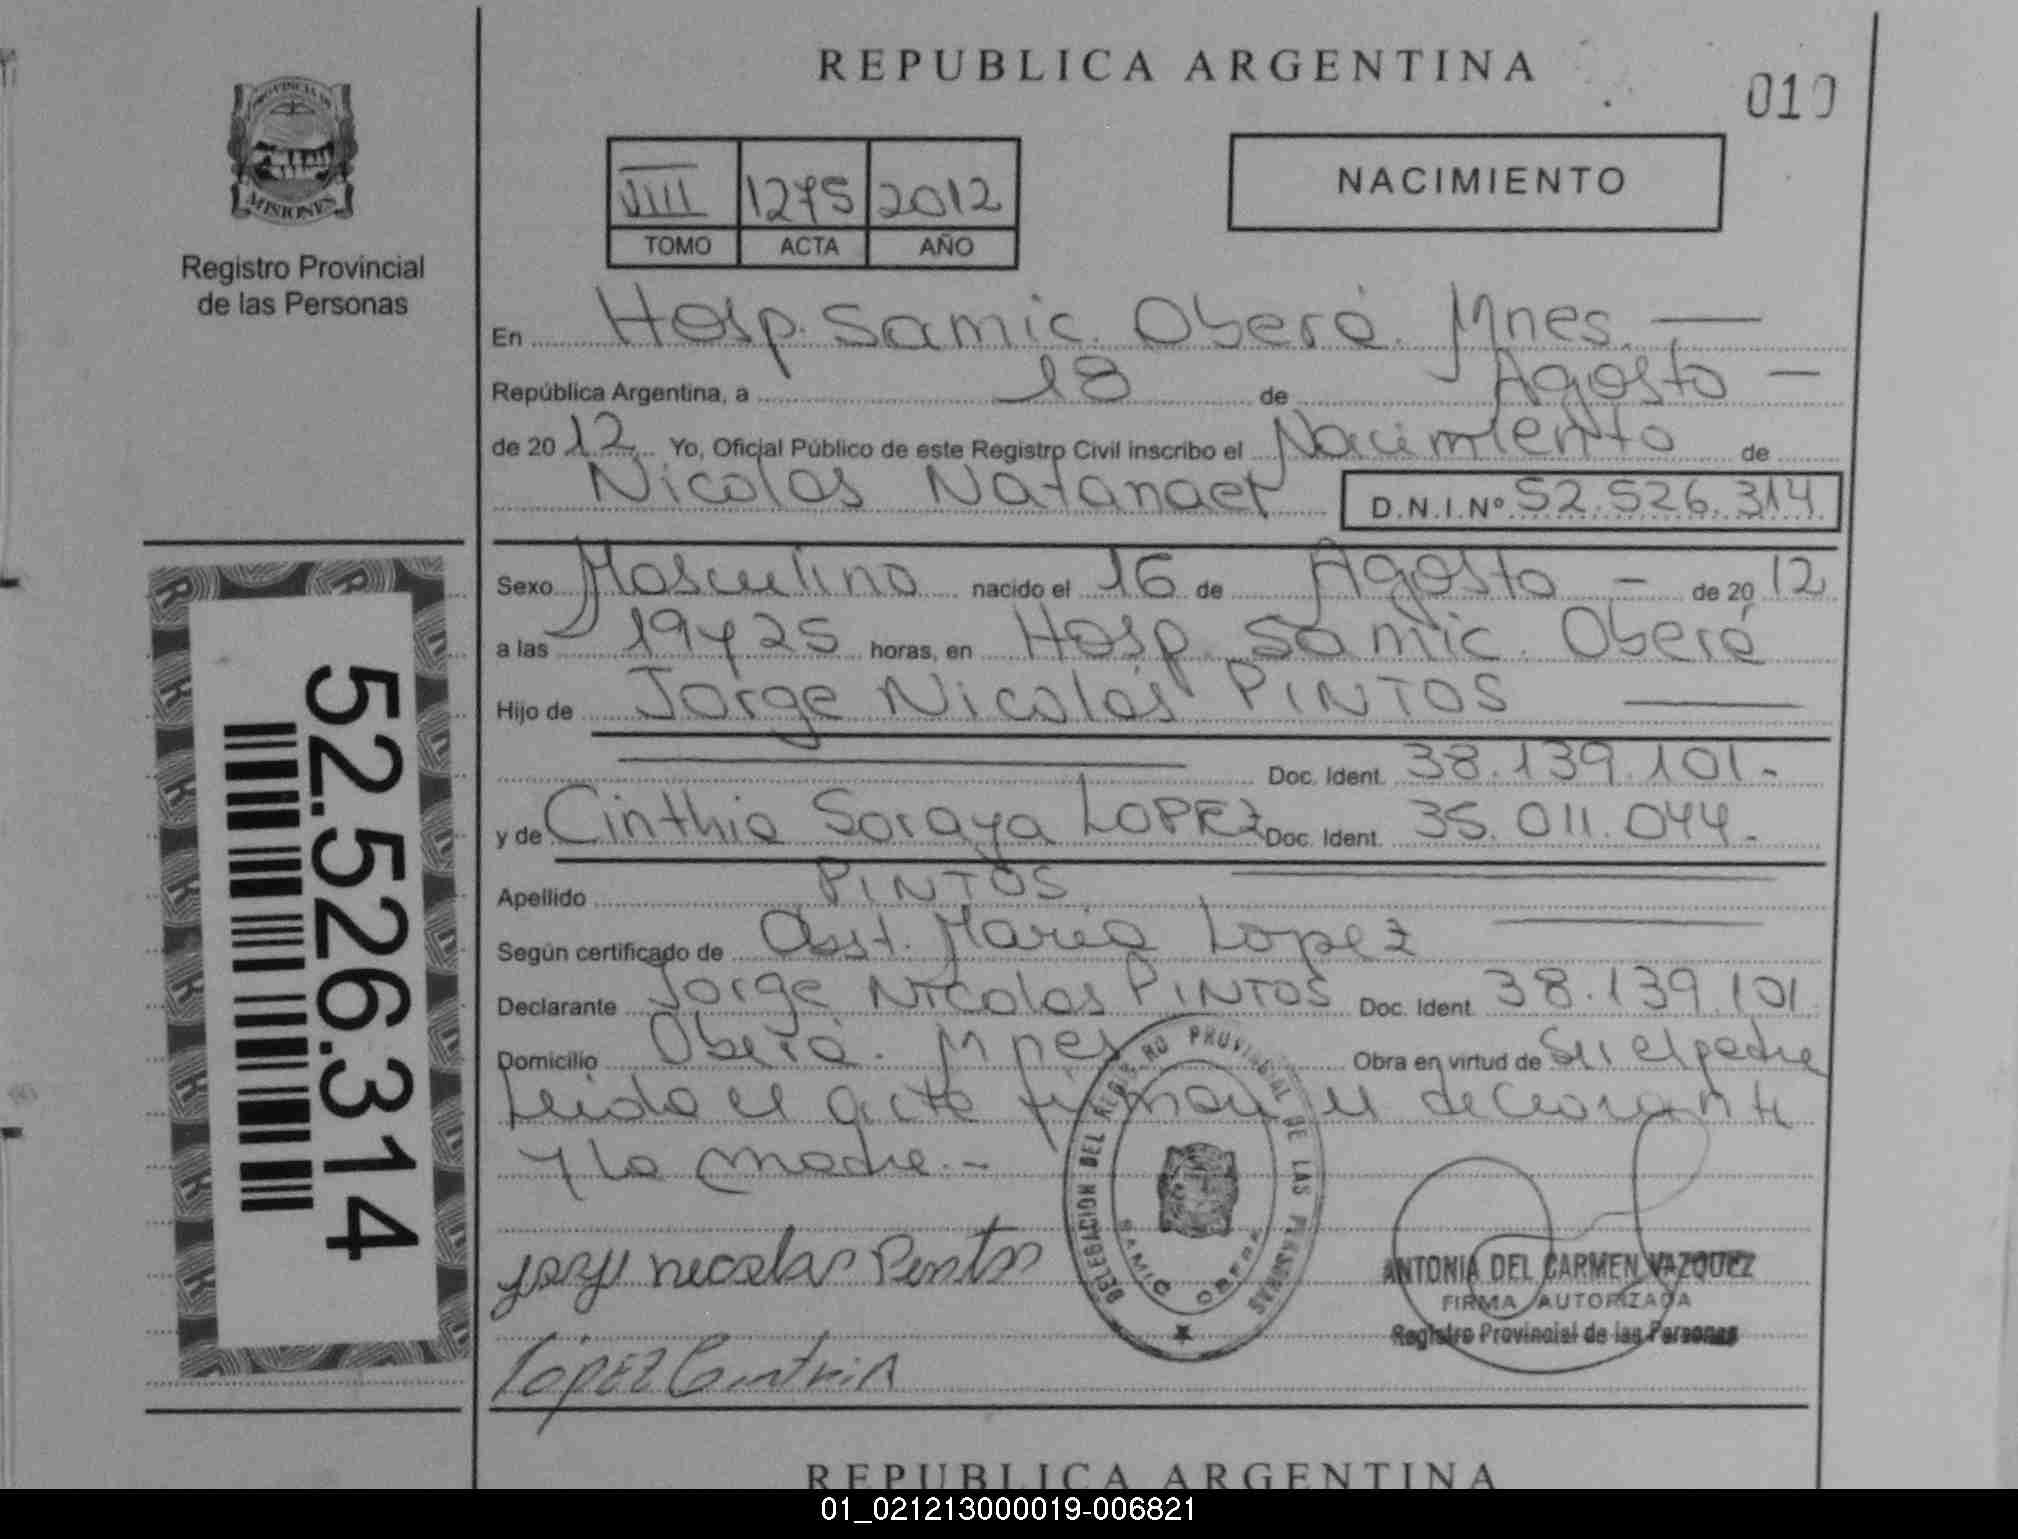 REPUBLICA ARGENTINA
010
PROVINCIA DE
MISIONES
Registro Provincial
de las Personas
VIII 1275 2012
TOMO ACTA AÑO
NACIMIENTO
En Hosp. Samic. Oberá. Mnes. —
República Argentina, a 18 de Agosto —
de 20 12 Yo, Oficial Público de este Registro Civil inscribo el Nacimiento de
Nicolas Natanael D.N.I.Nº 52.526.314
Sexo Masculino nacido el 16 de Agosto — de 20 12
a las 19 y 25 horas, en Hosp. Samic. Oberá
Hijo de Jorge Nicolás PINTOS —
Doc. Ident. 38.139.101.-
y de Cinthia Soraya LOPEZ Doc. Ident. 35.011.044.-
Apellido PINTOS
Según certificado de Obst. Maria Lopez
Declarante Jorge Nicolas PINTOS Doc. Ident. 38.139.101
Domicilio Oberá. Mnes Obra en virtud de Ser el padre
Leida el acta firman el declarante
y la madre.-
52.526.314
DELEGACION DEL REGISTRO PROVINCIAL DE LAS PERSONAS
SAMIC OBERA
Jorge Nicolas Pintos
ANTONIA DEL CARMEN VAZQUEZ
FIRMA AUTORIZADA
Registro Provincial de las Personas
LOPEZ Cinthia
REPUBLICA ARGENTINA
01_021213000019-006821